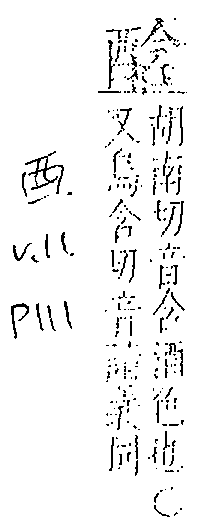 胡南切音含酒色也○
又烏含切音義同
酉.
V.11.
P111